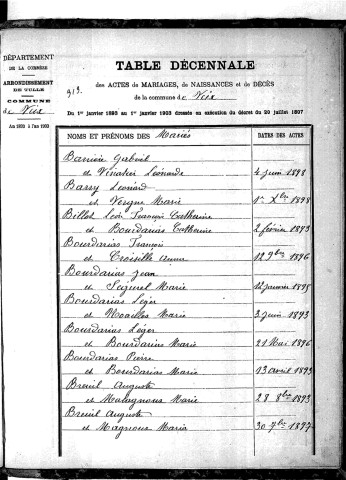 DÉPARTEMENT
DE LA CORRÈZE
ARRONDISSEMENT
DE TULLE
COMMUNE
de Vix
An 1893 à l'an 1903
TABLE DÉCENNALE
313.
des ACTES de MARIAGES, de NAISSANCES et de DÉCÈS
de la commune de Vix
Du 1er janvier 1893 au 1er janvier 1903 dressée en exécution du décret du 20 juillet 1807
NOMS ET PRÉNOMS DES Mariés DATES DES ACTES
Barrière
et Léonarde 4 juin 1898
Barry Léonard
et Vergne Marie 1er Xbre 1898
Billot Léon François Catherine
et Bourdarias Catherine 2 février 1893
Bourdarias François
et Croisille Anna 12 9bre 1896
Bourdarias Jean
et Ségurel Marie 12 janvier 1898
Bourdarias Léger
et Noailles Marie 3 juin 1893
Bourdarias Léger
et Bourdarias Marie 21 Mai 1896
Bourdarias Pierre
et Bourdarias Marie 13 avril 1893
Breuil Auguste
et Malagnoux Marie 28 8bre 1893
Breuil Auguste
et Magnoux Maria 30 7bre 1897